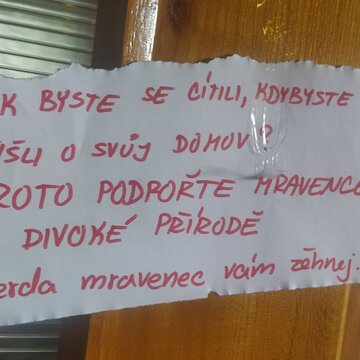 K BYSTE SE CÍTILI, KDYBYSTE
IŠLI O SVŮJ DOMOV?
ROTO PODPOŘTE MRAVENCE
DIVOKÉ PŘÍRODĚ
erda mravenec vám žěhnej.